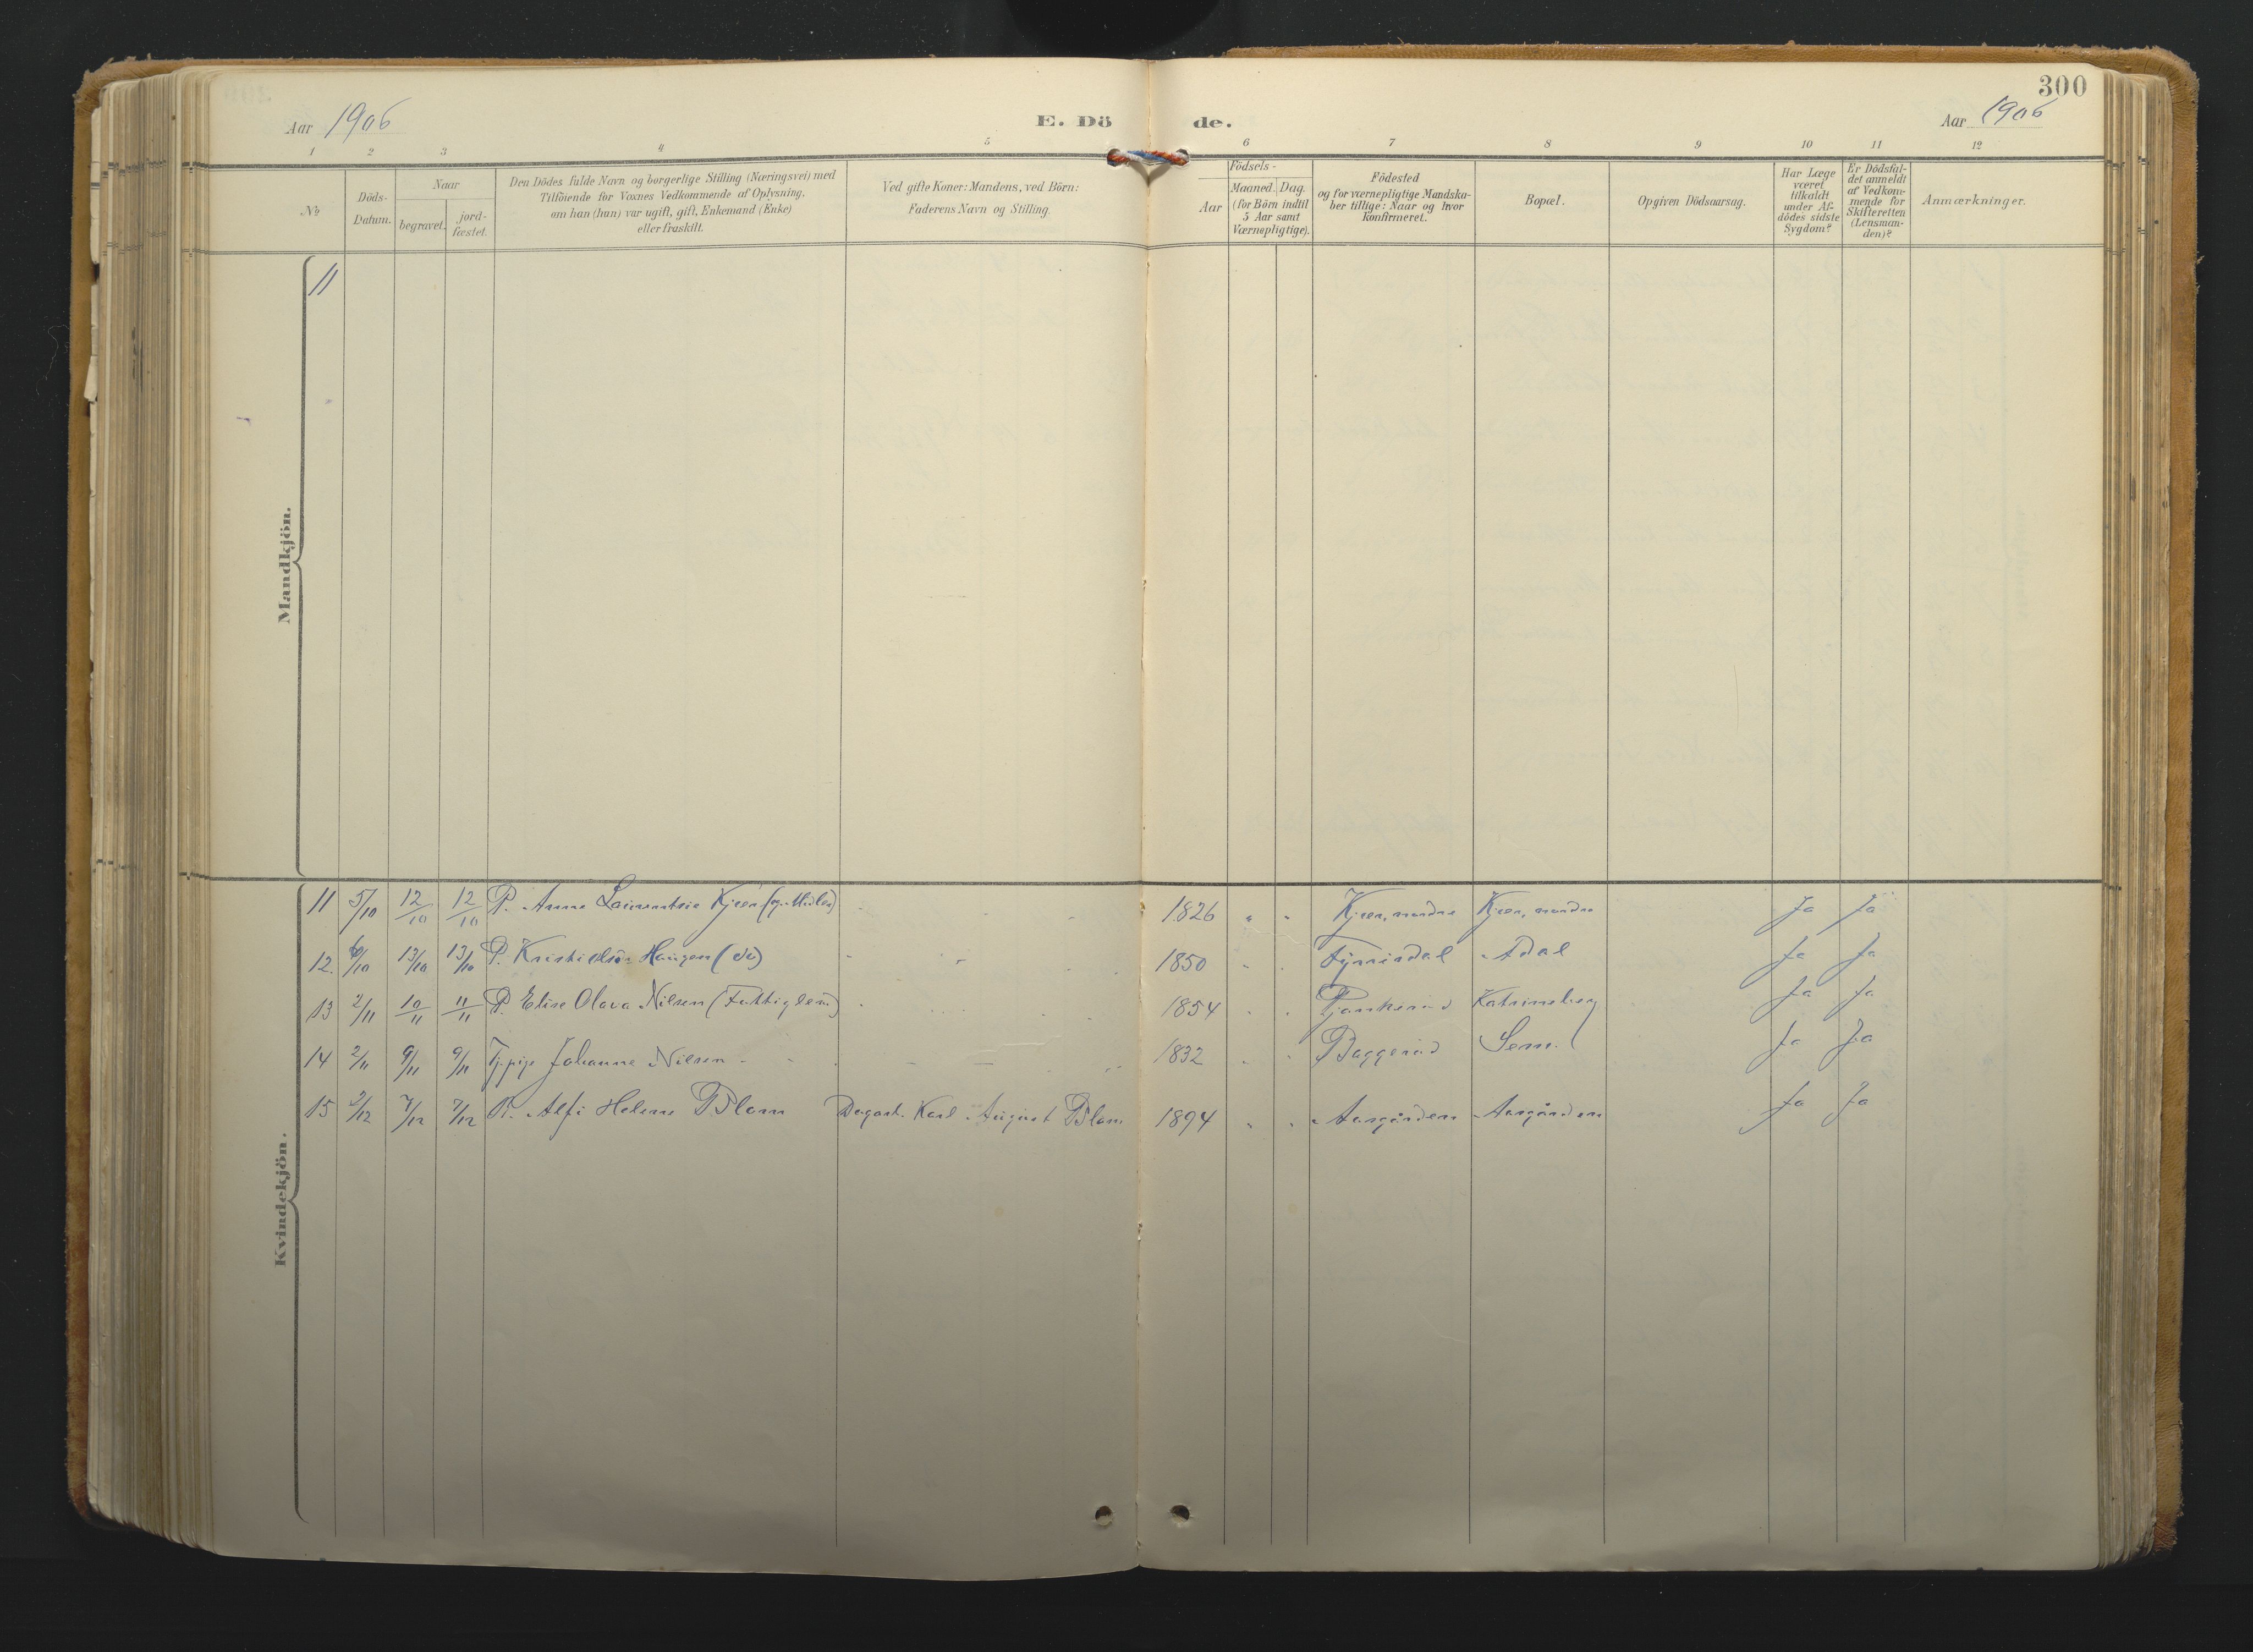 300
Aar 1906
E. Dö de.
Aar 1906
1 2 3 4 5 6 7 8 9 10 11 12
No
Döds-
Datum.
Naar
begravet.
jord-
fæstet.
Den Dödes fulde Navn og borgerlige Stilling (Næringsvei) med
Tilföiende for Voxnes Vedkommende af Oplysning,
om han (hun) var ugift, gift, Enkemand (Enke)
eller fraskilt.
Ved gifte Koner: Mandens, ved Börn:
Faderens Navn og Stilling.
Födsels-
Aar
Maaned. Dag.
(for Börn indtil
5 Aar samt
Værnepligtige).
Födested
og for værnepligtige Mandska-
ber tillige: Naar og hvor
konfirmeret.
Bopæl.
Opgiven Dödsaarsag.
Har Læge
været
tilkaldt
under Af-
dödes sidste
Sygdom?
Er Dödsfal-
det anmeldt
af Vedkom-
mende for
Skifteretten
(Lensman-
den)?
Anmærkninger.
Mandkjön.
11
Kvindekjön.
11 5/10 12/10 12/10 P. Anne Kjær 1826 " " Kjær, nordre Kjær, nordre Ja Ja
12. 6/10 13/10 13/10 P. Haugen 1850 " " Adal Ja Ja
13 2/11 10/11 11/11 P. Elise Olava Nilsen (Fattiglem) 1854 " " Katrineberg Ja Ja
14 2/11 9/11 9/11 Tj.pige Johanne Nilsen - 1832 " " Baggerud Sem. Ja Ja
15 2/12 7/12 7/12 P. Alfi Helene Blom Dagarb. Karl August Blom 1894 " " Aasgården Aasgården Ja Ja